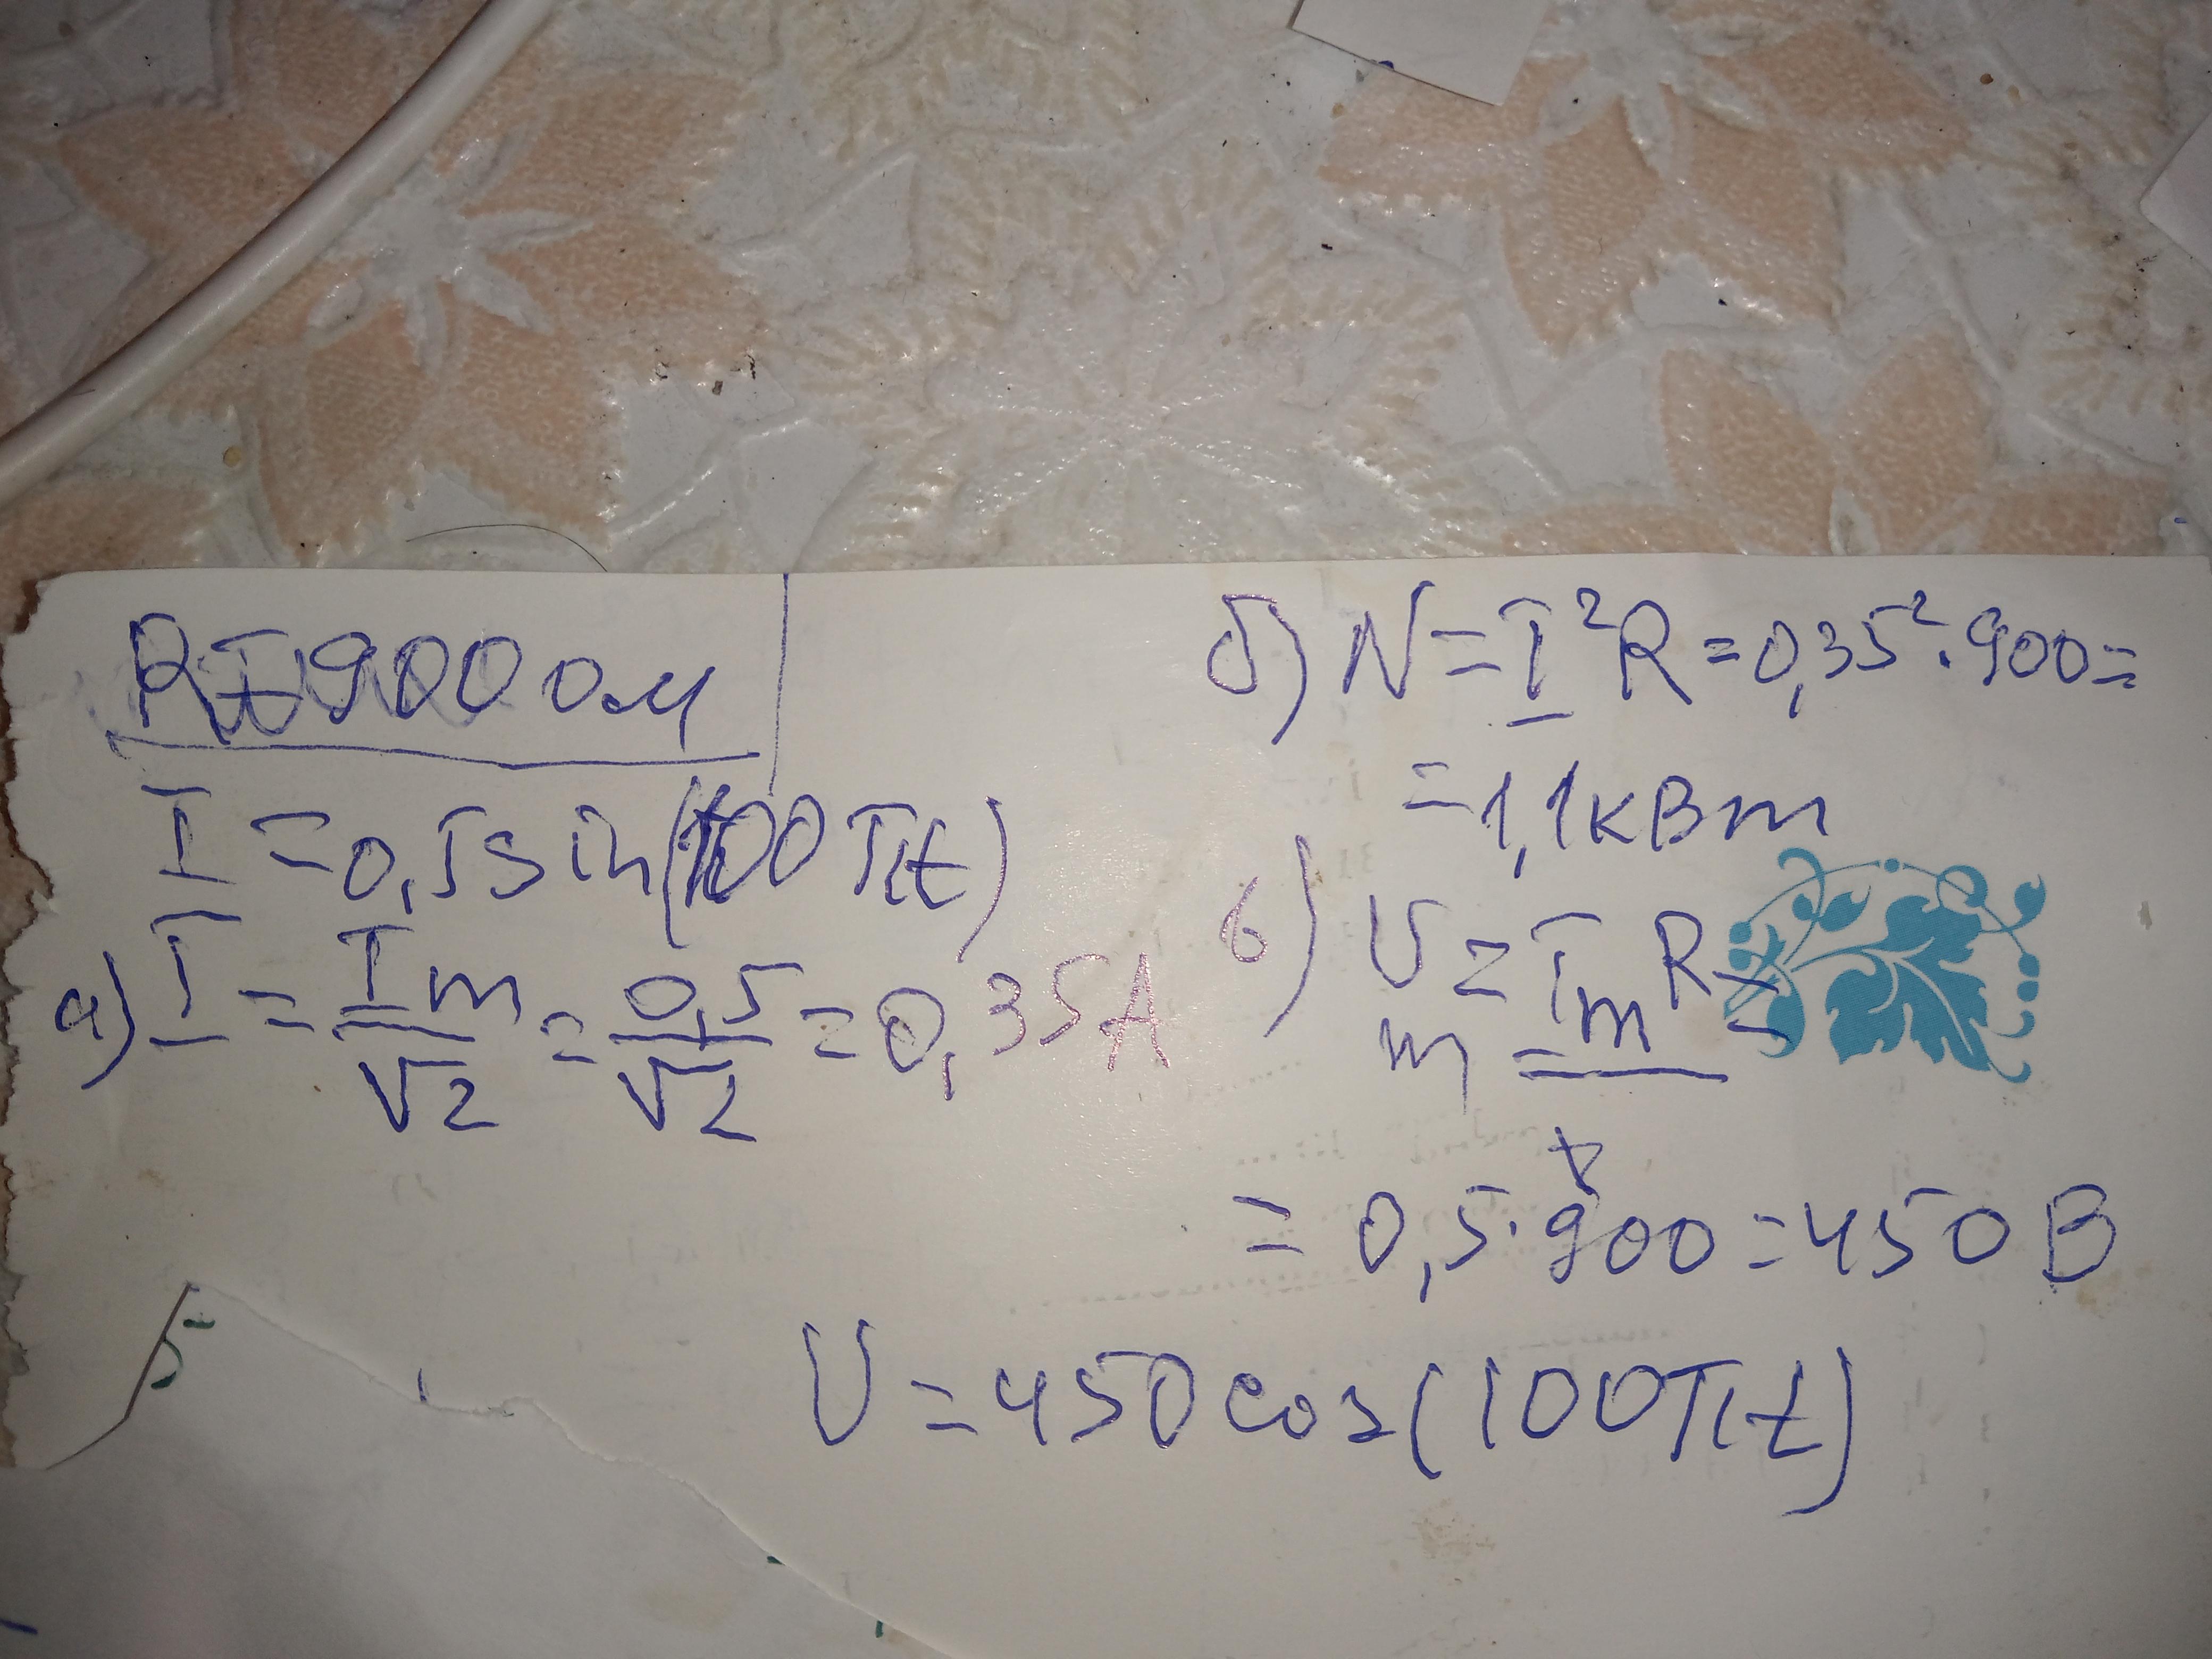 R=900 ом
I=0,5sin(100πt)
а) I = Im/√2 = 0,5/√2 = 0,35А
б) N=I²R=0,35²·900=
=1,1кВт
в) Um = Im R =
= 0,5·900=450 В
U=450cos(100πt)